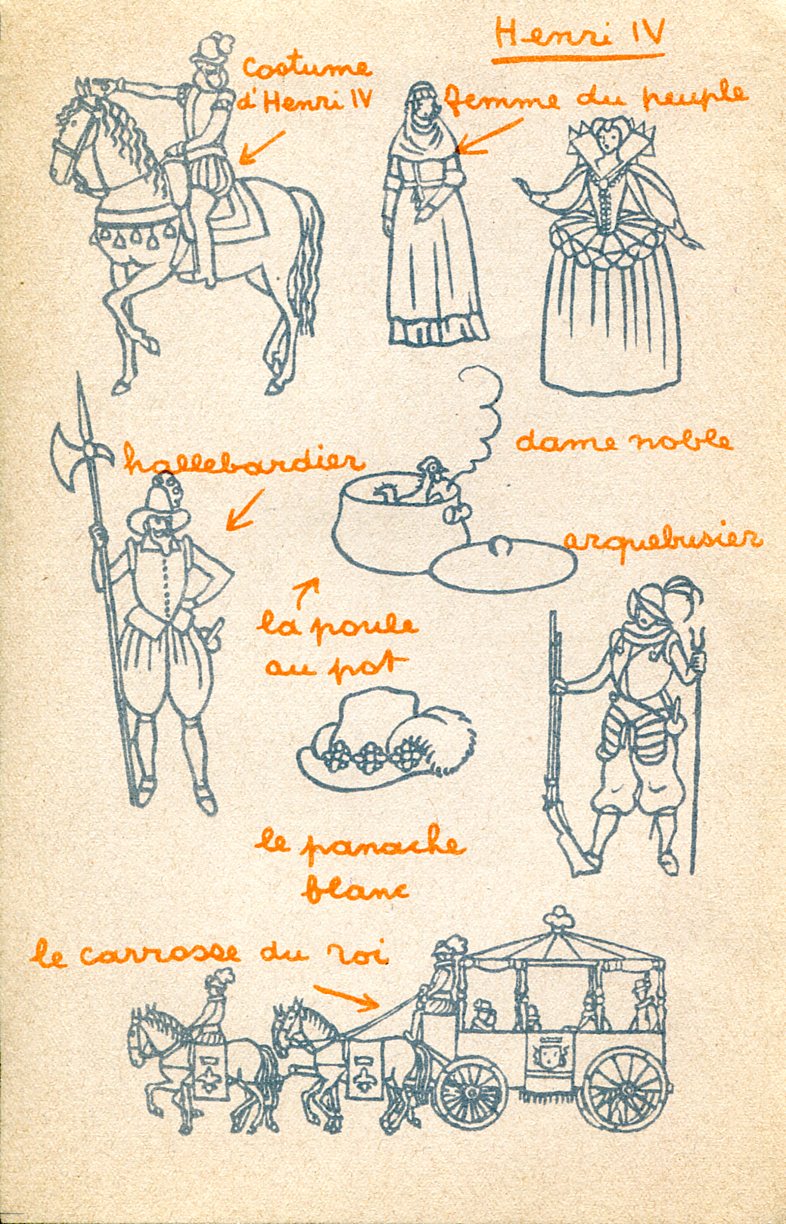 Henri IV
Costume
d'Henri IV
femme du peuple
dame noble
hallebardier
arquebusier
la poule
au pot
le panache
blanc
le carrosse du roi